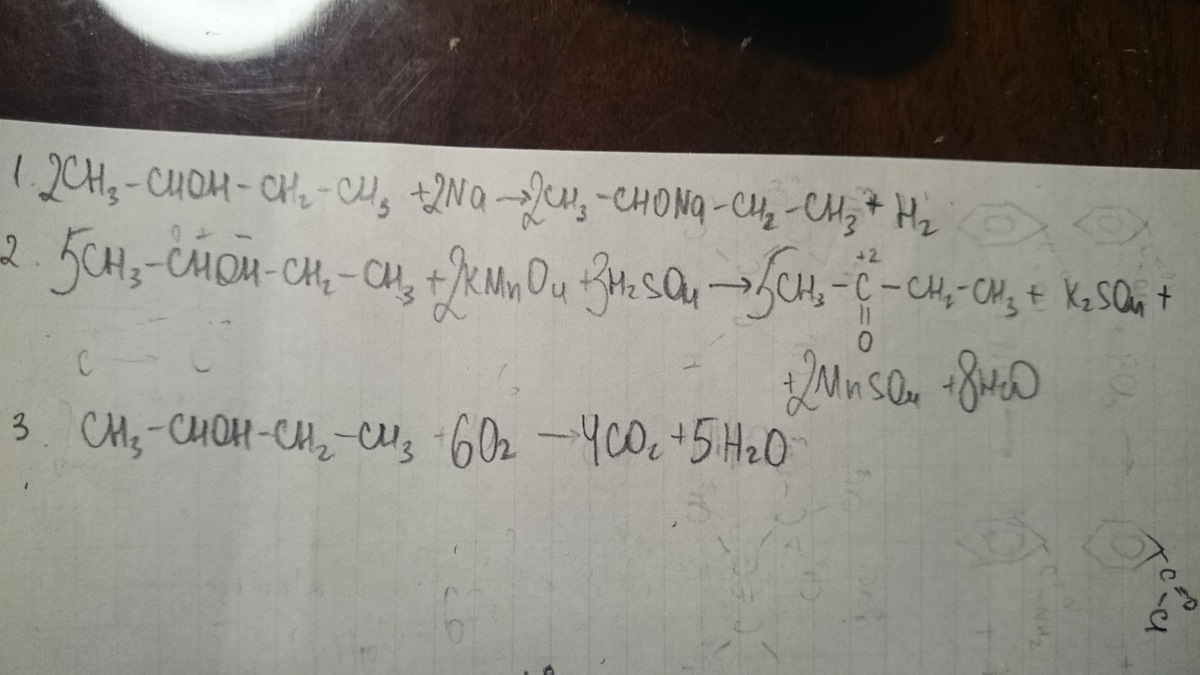 1. 2CH₃-CHOH-CH₂-CH₃ +2Na →2CH₃-CHONa-CH₂-CH₃+ H₂
2. 5CH₃-CHOH-CH₂-CH₃+2KMnO₄+3H₂SO₄→5CH₃-C-CH₂-CH₃+ K₂SO₄+
+2
||
O
+2MnSO₄ +8H₂O
3. CH₃-CHOH-CH₂-CH₃ +6O₂ →4CO₂+5H₂O
C=O
-Cl